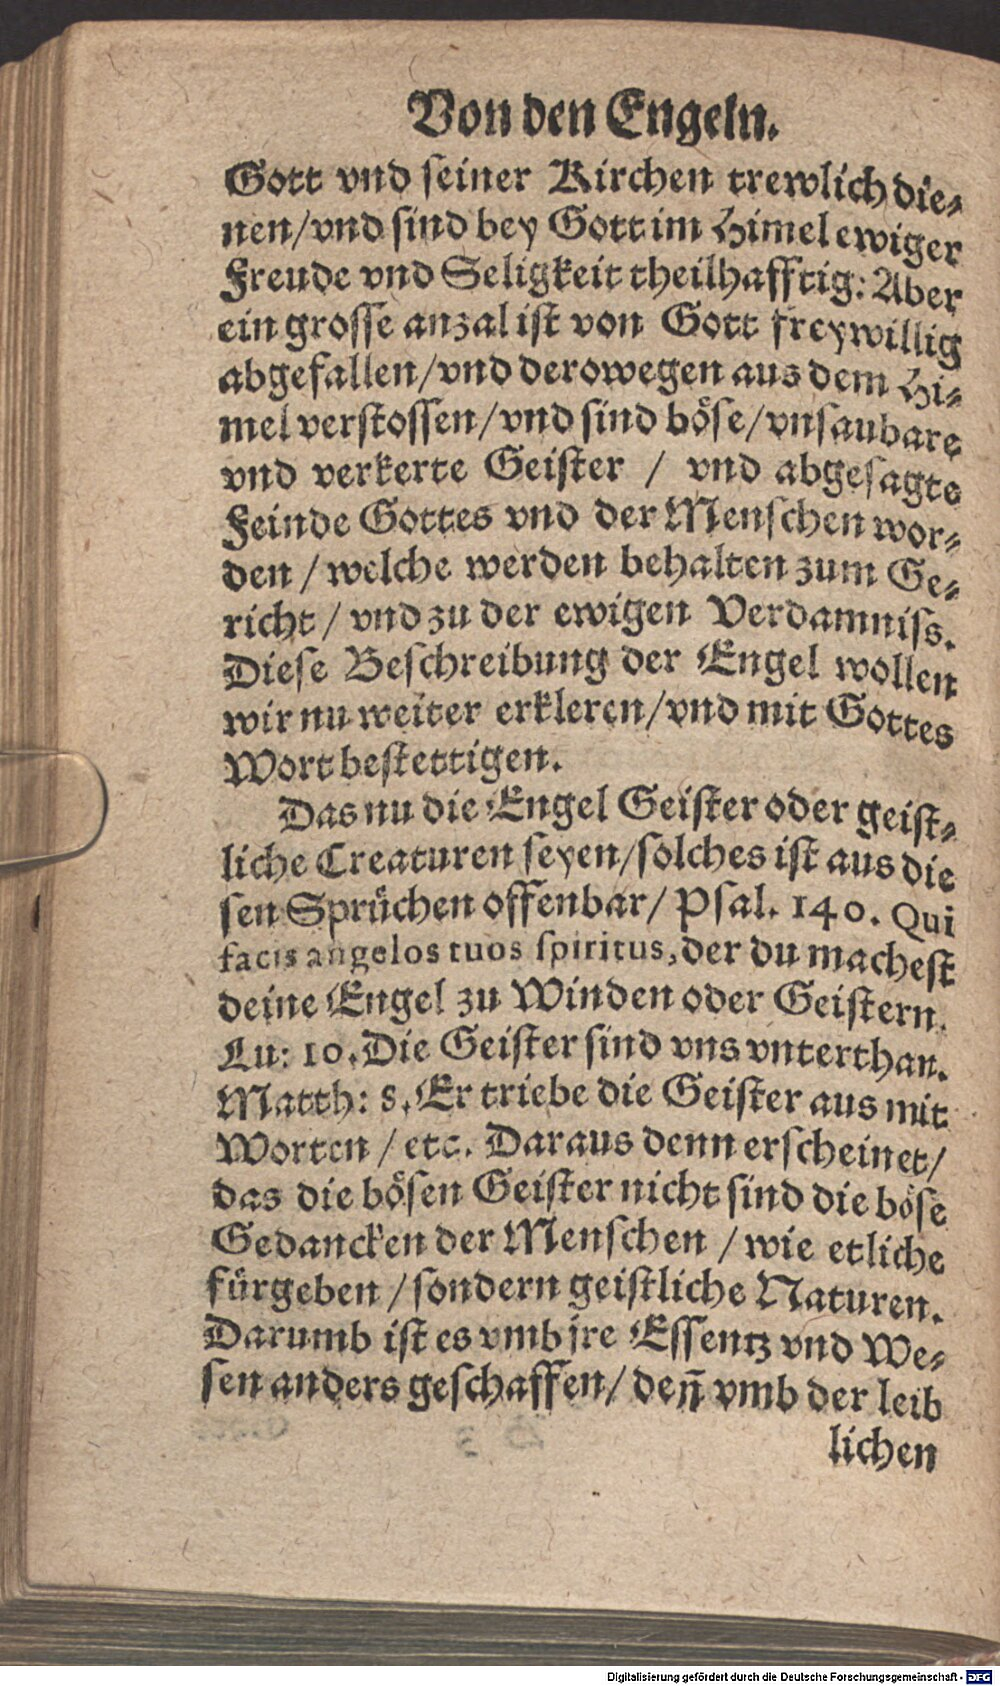 Von den Engeln.
Gott vnd seiner Kirchen trewlich die-
nen/vnd sind bey Gott im Himel ewiger
Freude vnd Seligkeit theilhafftig: Aber
ein grosse anzal ist von Gott freywillig
abgefallen/vnd derowegen aus dem Hi-
mel verstossen/vnd sind böse/vnsaubare
vnd verkerte Geister / vnd abgesagte
Feinde Gottes vnd der Menschen wor-
den / welche werden behalten zum Ge-
richt / vnd zu der ewigen Verdamniss.
Diese Beschreibung der Engel wollen
wir nu weiter erkleren/vnd mit Gottes
Wort bestettigen.
Das nu die Engel Geister oder geist-
liche Creaturen seyen/solches ist aus die
sen Sprüchen offenbar/ Psal. 140. Qui
facis angelos tuos spiritus, der du machest
deine Engel zu Winden oder Geistern.
Lu: 10. Die Geister sind vns vnterthan.
Matth: 8. Er triebe die Geister aus mit
Worten / etc. Daraus denn erscheinet/
das die bösen Geister nicht sind die böse
Gedancken der Menschen / wie etliche
fürgeben / sondern geistliche Naturen.
Darumb ist es vmb jre Essentz vnd We-
sen anders geschaffen/ den̄ vmb der leib
lichen
Digitalisierung gefördert durch die Deutsche Forschungsgemeinschaft - DFG